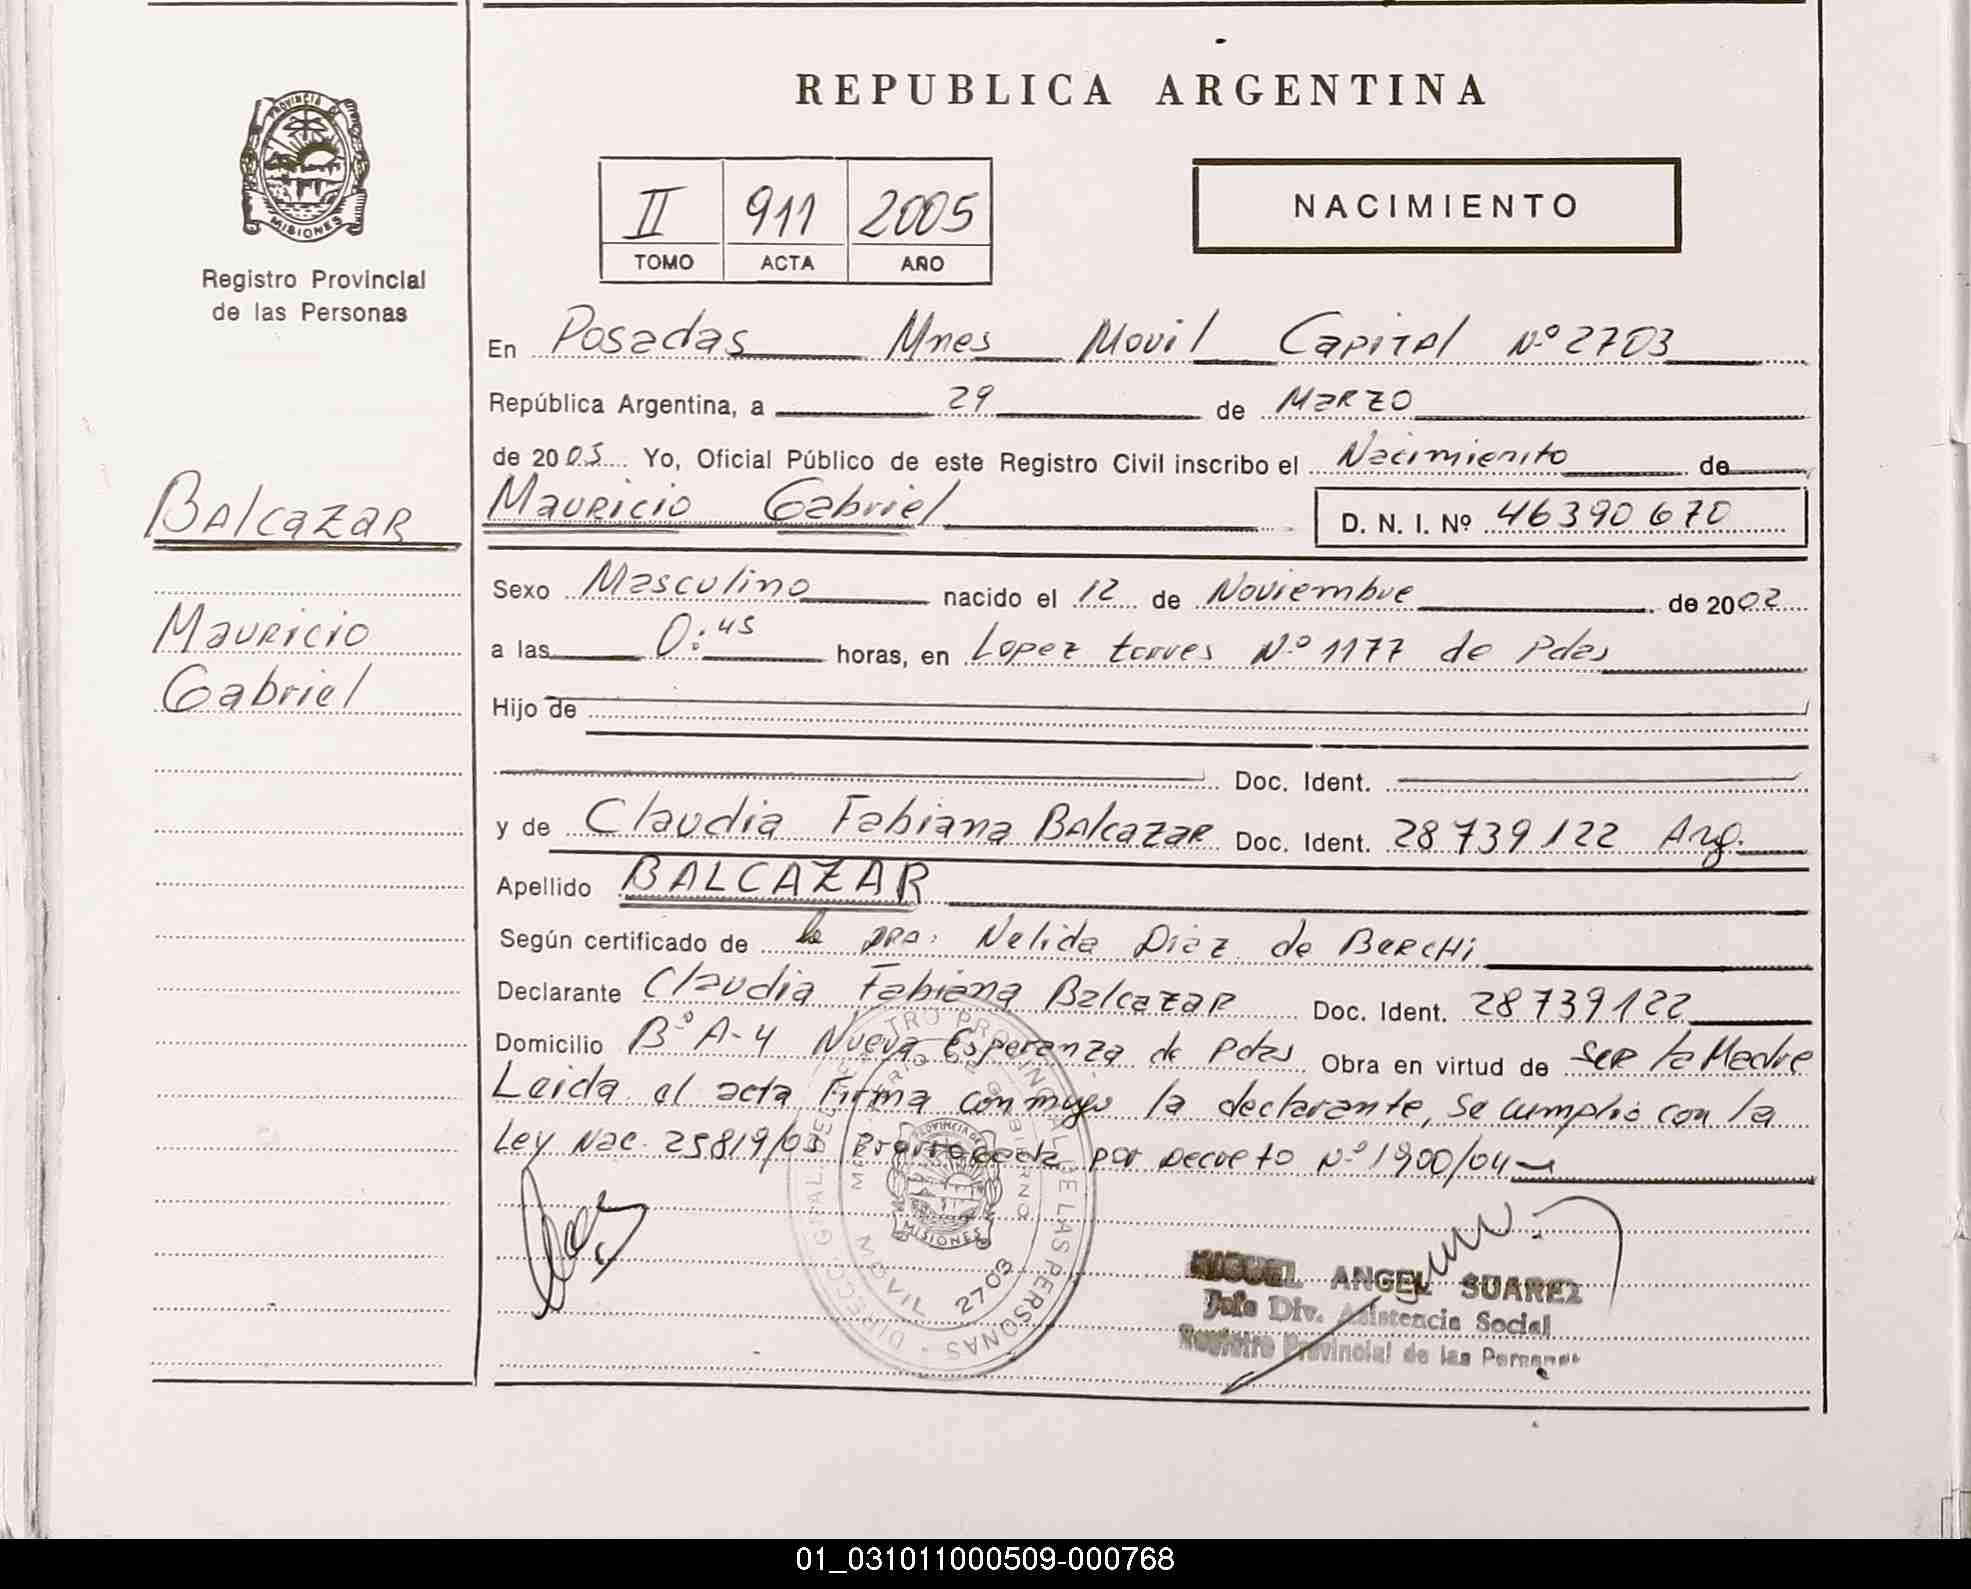 REPUBLICA ARGENTINA
PROVINCIA DE
MISIONES
Registro Provincial
de las Personas
II 911 2005
TOMO ACTA AÑO
NACIMIENTO
En Posadas Mnes Movil Capital Nº 2703
República Argentina, a 29 de Marzo
de 2005 Yo, Oficial Público de este Registro Civil inscribo el Nacimiento de
Balcazar
Mauricio Gabriel D. N. I. Nº 46390670
Sexo Masculino nacido el 12 de Noviembre de 2002
Mauricio
a las 0:45 horas, en Lopez torres Nº 1177 de Pdas
Gabriel
Hijo de
Doc. Ident.
y de Claudia Fabiana Balcazar Doc. Ident. 28739122 Arg.
Apellido BALCAZAR
Según certificado de la DRA: Nelida Diaz de Berchi
Declarante Claudia Fabiana Balcazar Doc. Ident. 28739122
Domicilio Bº A-4 Nueva Esperanza de Pdas Obra en virtud de ser la Madre
Leida el acta Firma conmigo la declarante, se cumplió con la
Ley Nac. 25819/03 Prorrogada por Decreto Nº 1900/04
DIRECC. GRAL. DEL REGISTRO PROVINCIAL DE LAS PERSONAS
MINISTERIO DE GOBIERNO
PROVINCIA DE
MISIONES
MOVIL 2703
MIGUEL ANGEL SUAREZ
Jefe Div. Asistencia Social
Registro Provincial de las Personas
01_031011000509-000768